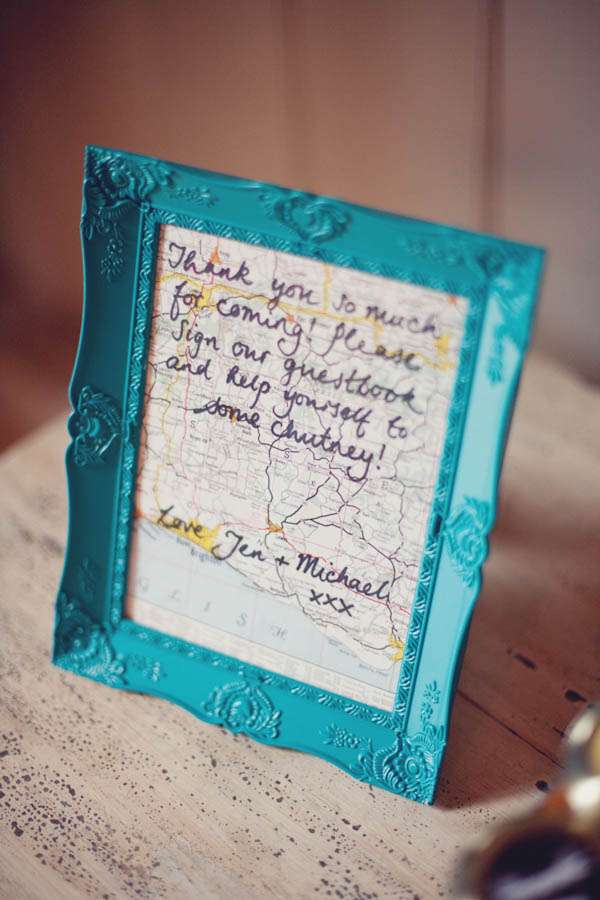 Thank you so much
for coming! please
sign our guestbook
and help yourself to
some chutney!
Love Jen + Michael
xxx
G L I S H